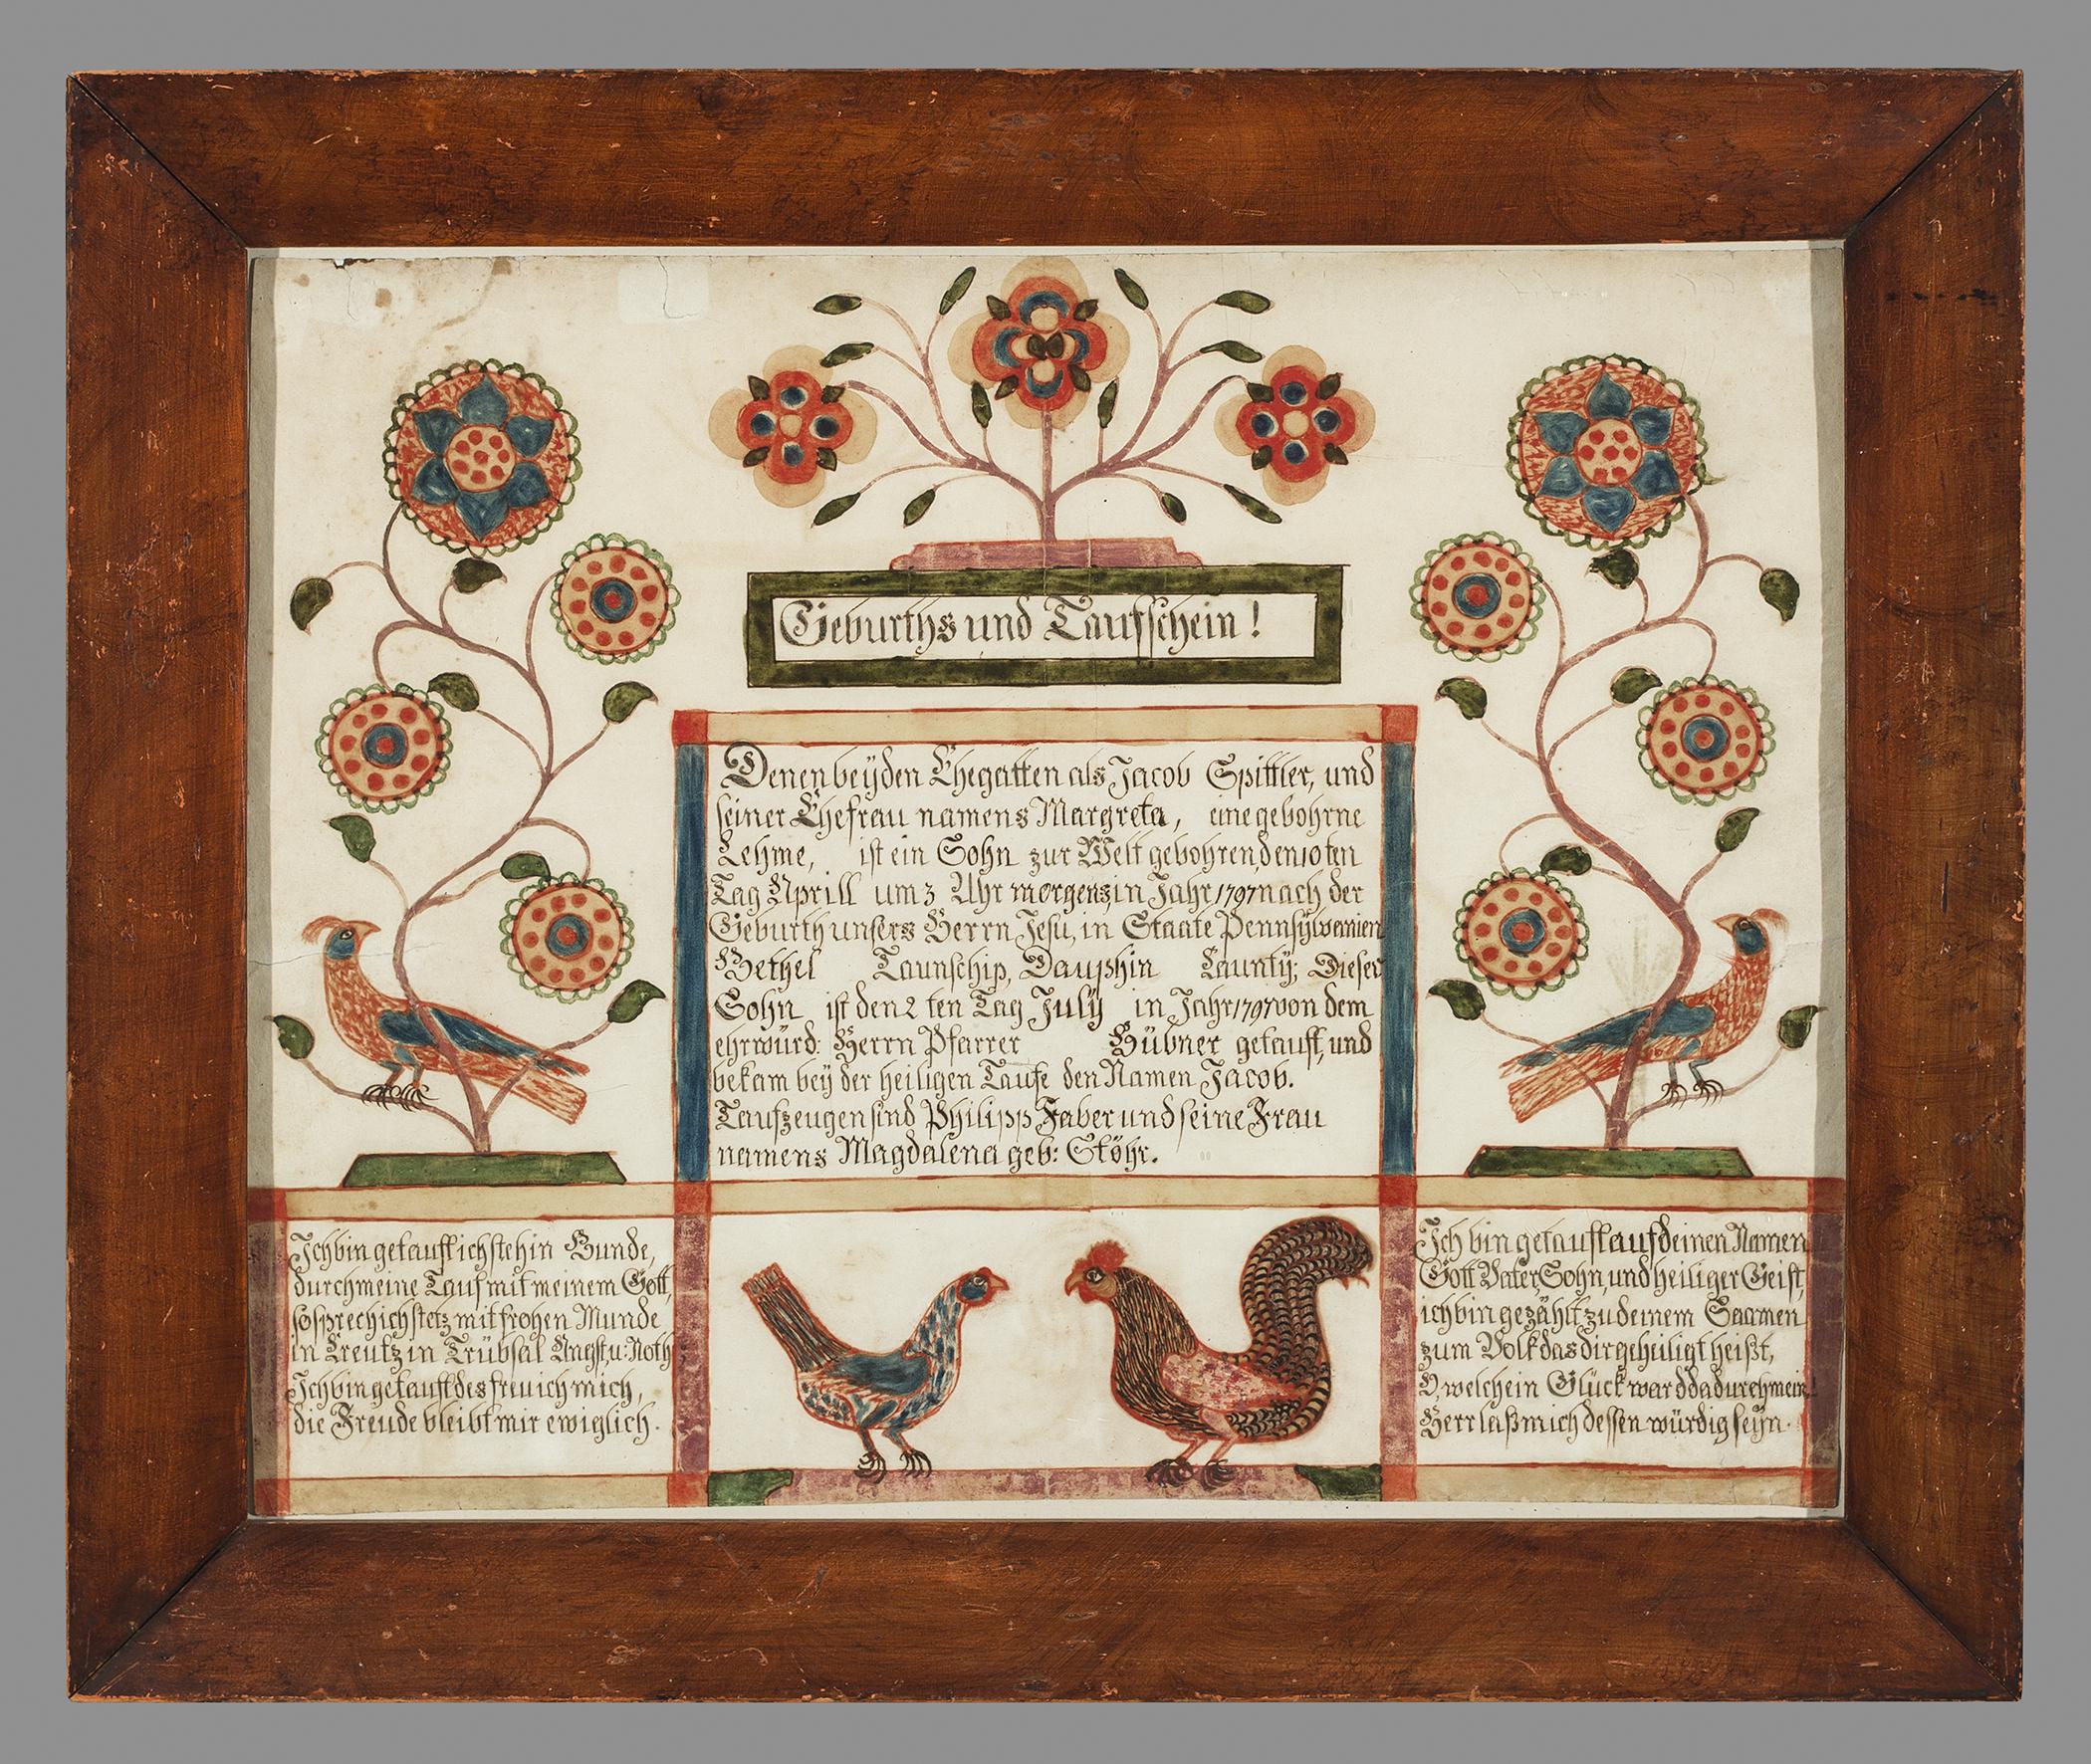 Geburths und Taufschein!
Denen beÿden Ehegatten als Jacob Spittler, und
seiner Ehefrau namens Margreta, eine gebohrne
Lehme, ist ein Sohn zur Welt gebohren, den 10 ten
Tag Aprill um 3 Uhr morgens, in Jahr 1797 nach der
Geburth unsers Herrn Jesu, in Staate Pennsÿlvanien
Bethel Taunschip, Dauphin Caunty; Dieser
Sohn ist den 2 ten Tag Julÿ in Jahr 1797 von dem
ehrwürd: Herrn Pfarrer Hübner getauft, und
bekam beÿ der heiligen Taufe den Namen Jacob.
Taufzeugen sind Philipp Faber und seine Frau
namens Magdalena geb: Stöhr.
Ich bin getauft ich steh in Bunde,
durch meine Tauf mit meinem Gott,
so sprech ich stetz mit frohen Munde
in Creutz in Trübsal Angst, u: Noth
Ich bin getauft des freu ich mich,
die Freude bleibt mir ewiglich.
Ich bin getauft auf deinen Namen
Gott Vater, Sohn, und heiliger Geist,
ich bin gezählt zu deinem Saamen
zum Volk das dir geheiligt heißt,
O, welch ein Glück ward dadurch mein
Herr laß mich dessen würdig seÿn.